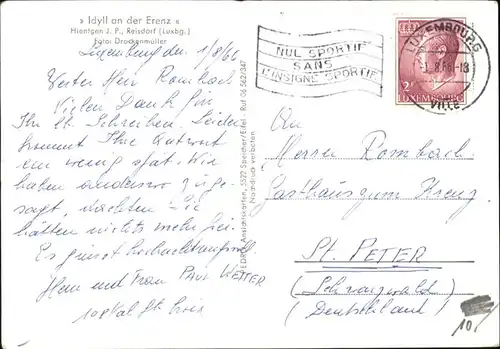 » Idyll an der Erenz «
Hientgen J. P., Reisdorf (Luxbg.)
Foto: Drockenmüller
Luxemburg den 1/8/66
Werter Herr Rombach
Vielen Dank für
Ihr Schreiben. Leider
kommt Ihre Antwort
ein wenig spät. Wir
haben anderswo zuge-
sagt, dachten Sie
hätten nichts mehr frei.
Es grüsst hochachtungsvoll
Herr und Frau PAUL WETTER
Ansichtskarten, 5522 Speicher/Eifel · Ruf 06 562/347
Nachdruck verboten
NUL SPORTIF
SANS
L'INSIGNE SPORTIF
LUXEMBOURG
VILLE
2
LUXEMBOURG
An
Herrn Rombach
Gasthaus zum Kreuz
St. PETER
(Schwarzwald)
(Deutschland)
10